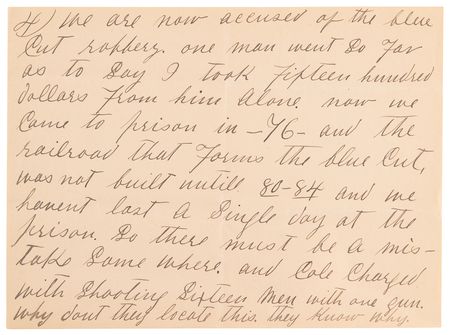 4) We are now accused of the blue
Cut robbery. one man went So Far
as to Say I took Fifteen hundred
dollars From him Alone. now we
Came to prison in -76- and the
railroad that Forms the blue Cut,
was not built untill 80-84 and we
havent lost A Single day at the
prison. So there must be a mis-
take Some where. and Cole Charged
with Shooting Sixteen Men with one gun.
why dont they locate this. they Know why.